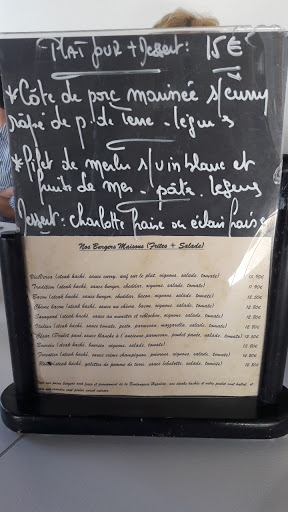 PLAT JOUR + Dessert: 15€
*Côte de porc marinée s/curry
râpé de p. de terre - légumes
*Filet de merlu s/vin blanc et
fruits de mer - pâte - legumes
Dessert: charlotte fraise ou eclair fraise
Nos Burgers Maisons (Frites + Salade)
(steak haché, sauce curry, œuf sur le plat, oignons, salade, tomate) 12.90€
Tradition (steak haché, sauce burger, cheddar, oignons, salade, tomate) 11.90€
Bacon (steak haché, sauce burger, cheddar, bacon, oignons, salade, tomate) 12.50€
Chèvre bacon (steak haché, sauce au chèvre, bacon, oignons, salade, tomate) 12.50€
Savoyard (steak haché, sauce au munster et reblochon, oignons, salade, tomate) 12.50€
Italien (steak haché, sauce tomate, pesto, parmesan, mozzarella, salade, tomate) 12.50€
César (Poulet pané sauce blanche à l'ancienne, parmesan, poulet panée, salade, tomate) 12.50€
(steak haché, oignons, salade, tomate) 12.50€
Forestier (steak haché, sauce crème champignons, poivrons, oignons, salade, tomate) 12.50€
(steak haché, galettes de pomme de terre, sauce ciboulette, salade, tomate) 12.50€